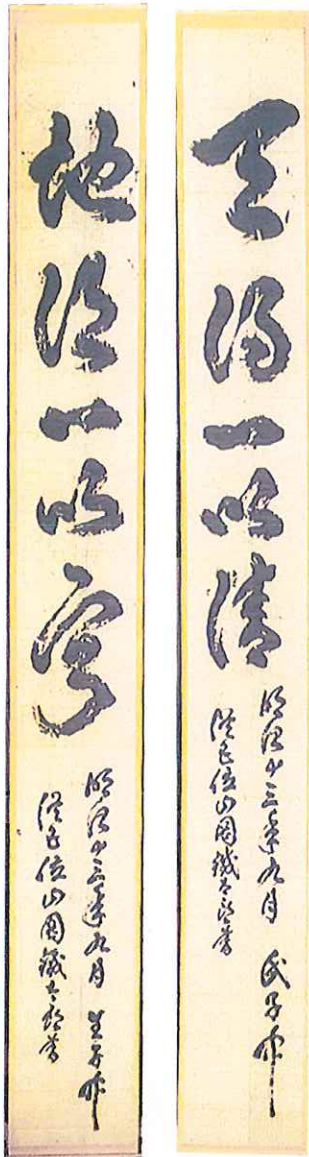 天得一以清
明治十三年九月 氏子中
從五位山岡鐵太郎書
地得一以寧
明治十三年九月 生子中
從五位山岡鐵太郎書